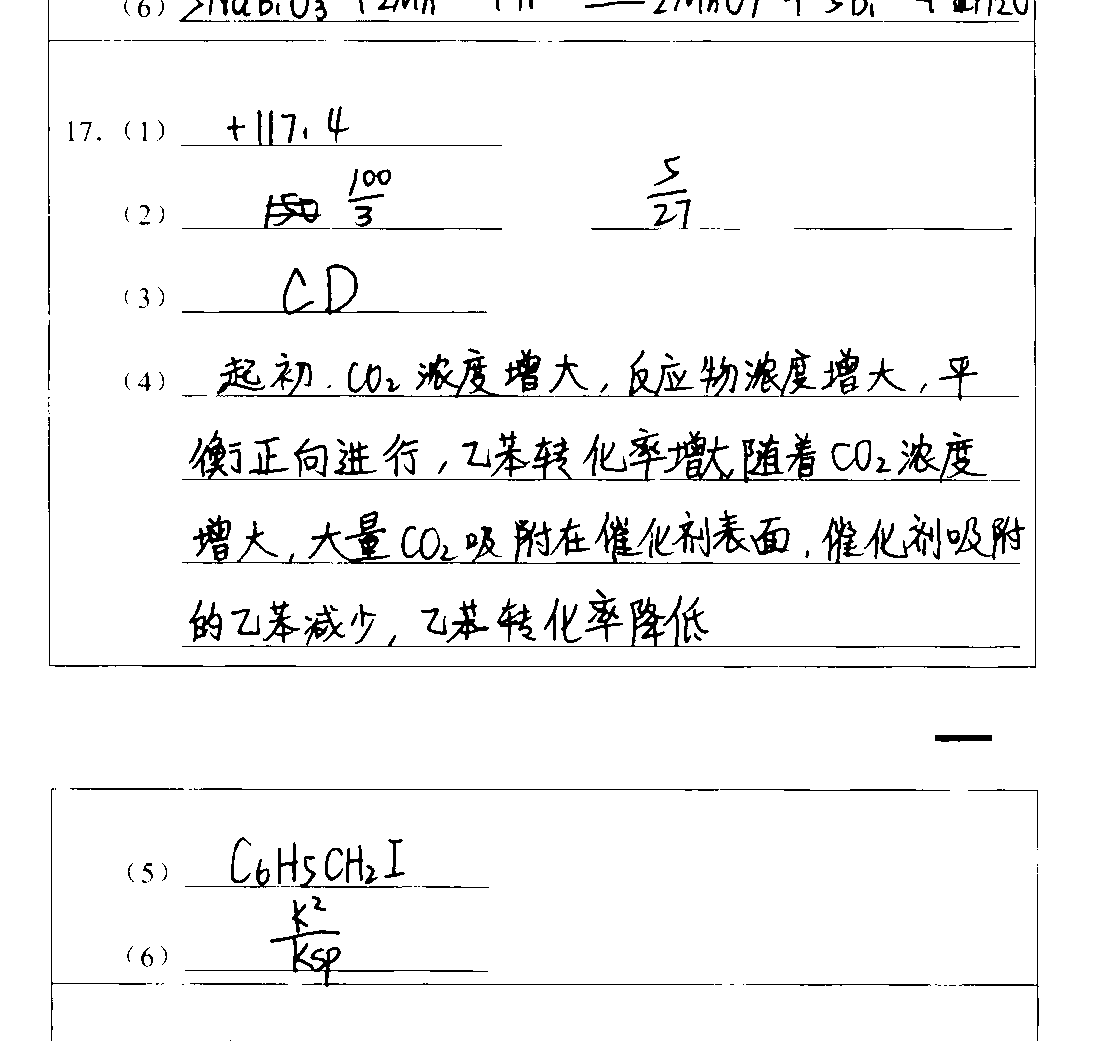 (6) 5NaBiO3 +2Mn + H == 2MnO4 + 5Bi + H2O
17. (1) +117.4
(2) 100/3 5/27
(3) CD
(4) 起初.CO₂浓度增大,反应物浓度增大,平
衡正向进行,乙苯转化率增大,随着CO₂浓度
增大,大量CO₂吸附在催化剂表面,催化剂吸附
的乙苯减少,乙苯转化率降低
(5) C₆H₅CH₂I
(6) K²/Ksp